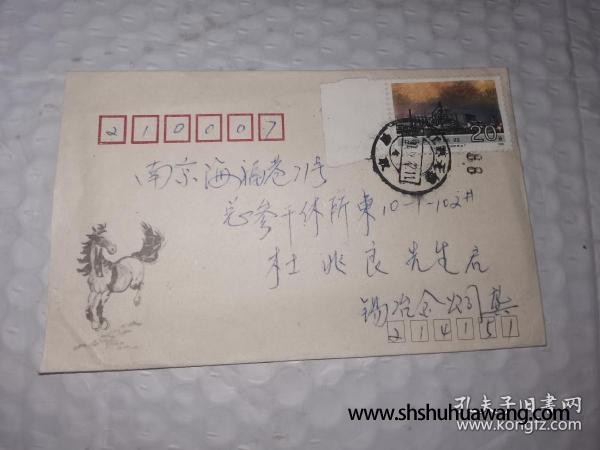 20
210007
8.8
南京海福巷71号
总参干休所東10-1-102#
杜兆良先生启
锡冶金
214151
孔夫子旧書网
www.shshuhuawang.com
www.kongfz.com